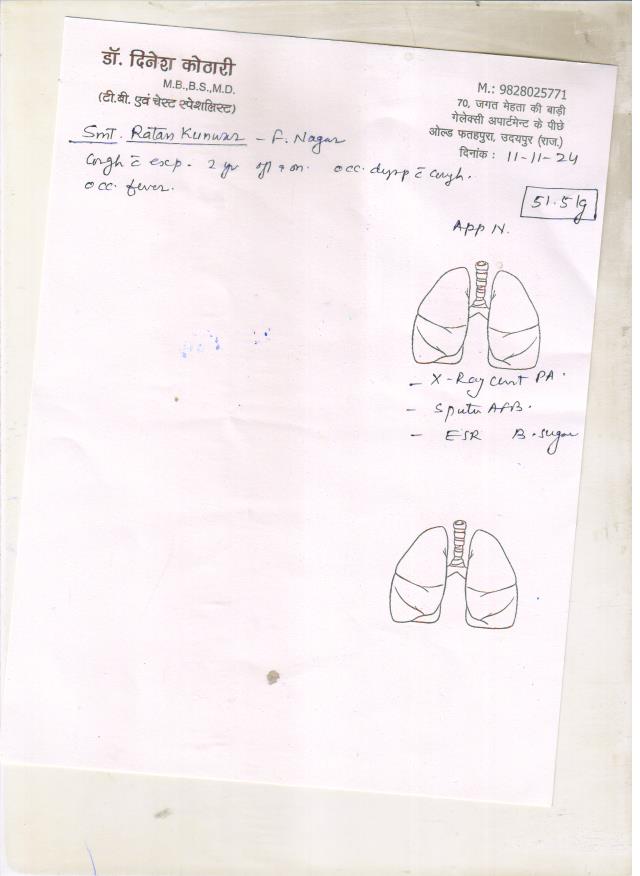 डॉ. दिनेश कोठारी
M.B.,B.S.,M.D.
(टी.बी. एवं चेस्ट स्पेशलिस्ट)
M.: 9828025771
70, जगत मेहता की बाड़ी
गेलेक्सी अपार्टमेन्ट के पीछे
ओल्ड फतहपुरा, उदयपुर (राज.)
दिनांक : 11-11-24
Smt. Ratan Kunwar - F. Nagar
Cough c̄ exp. 2 yr off & on. occ. dysp c̄ cough.
occ. fever.
51.5 kg
App N.
- X-Ray Chest PA.
- Sputu AFB.
- ESR B. sugar